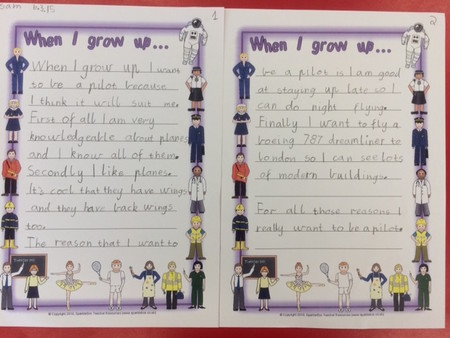 Sam
1
When I grow up...
When I grow up I want
so be a pilot because
I think it will suit me.
First of all I am very
knowledgeable about planes
and I know all of them.
Secondly I like planes.
It's cool that they have wings
and they have back wings
too.
The reason that I want to
2
When I grow up...
be a pilot is I am good
at staying up late so I
can do night flying.
Finally I want to fly a
boeing 787 dreamliner to
London so I can see lots
of modern buildings.
For all those reasons I
really want to be a pilot.